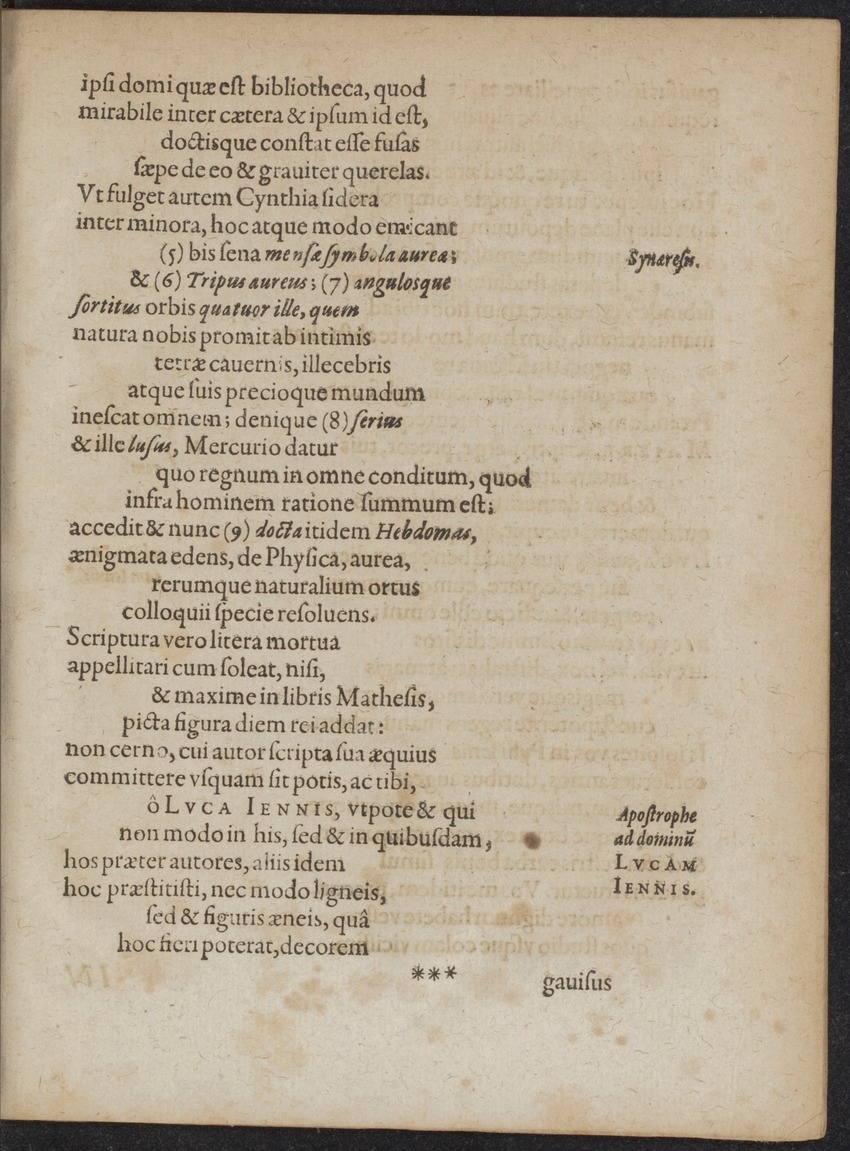 ipſi domi quæ eſt bibliotheca, quod
mirabile inter cætera & ipſum id eſt,
doctisque conſtat eſſe fuſas
ſæpe de eo & grauiter querelas.
Vt fulget autem Cynthia ſidera
inter minora, hoc atque modo emicant
(5) bis ſena menſæ ſymbola aurea;
Synæreſis.
& (6) Tripus aureus; (7) angulosque
ſortitus orbis quatuor ille, quem
natura nobis promit ab intimis
terræ cauernis, illecebris
atque ſuis precioque mundum
ineſcat omnem; denique (8) ſerius
& ille luſus, Mercurio datur
quo regnum in omne conditum, quod
infra hominem ratione ſummum eſt;
accedit & nunc (9) docta itidem Hebdomas,
ænigmata edens, de Phyſica, aurea,
rerumque naturalium ortus
colloquii ſpecie reſoluens.
Scriptura vero litera mortua
appellitari cum ſoleat, niſi,
& maxime in libris Matheſis,
picta figura diem rei addat:
non cerno, cui autor ſcripta ſua æquius
committere vſquam ſit potis, ac tibi,
ô LVCA IENNIS, vtpote & qui
Apoſtrophe
non modo in his, ſed & in quibuſdam,
ad dominũ
hos præter autores, aliis idem
LVCAM
hoc præſtitiſti, nec modo ligneis,
IENNIS.
ſed & figuris æneis, quâ
hoc fieri poterat, decorem
***
gauiſus